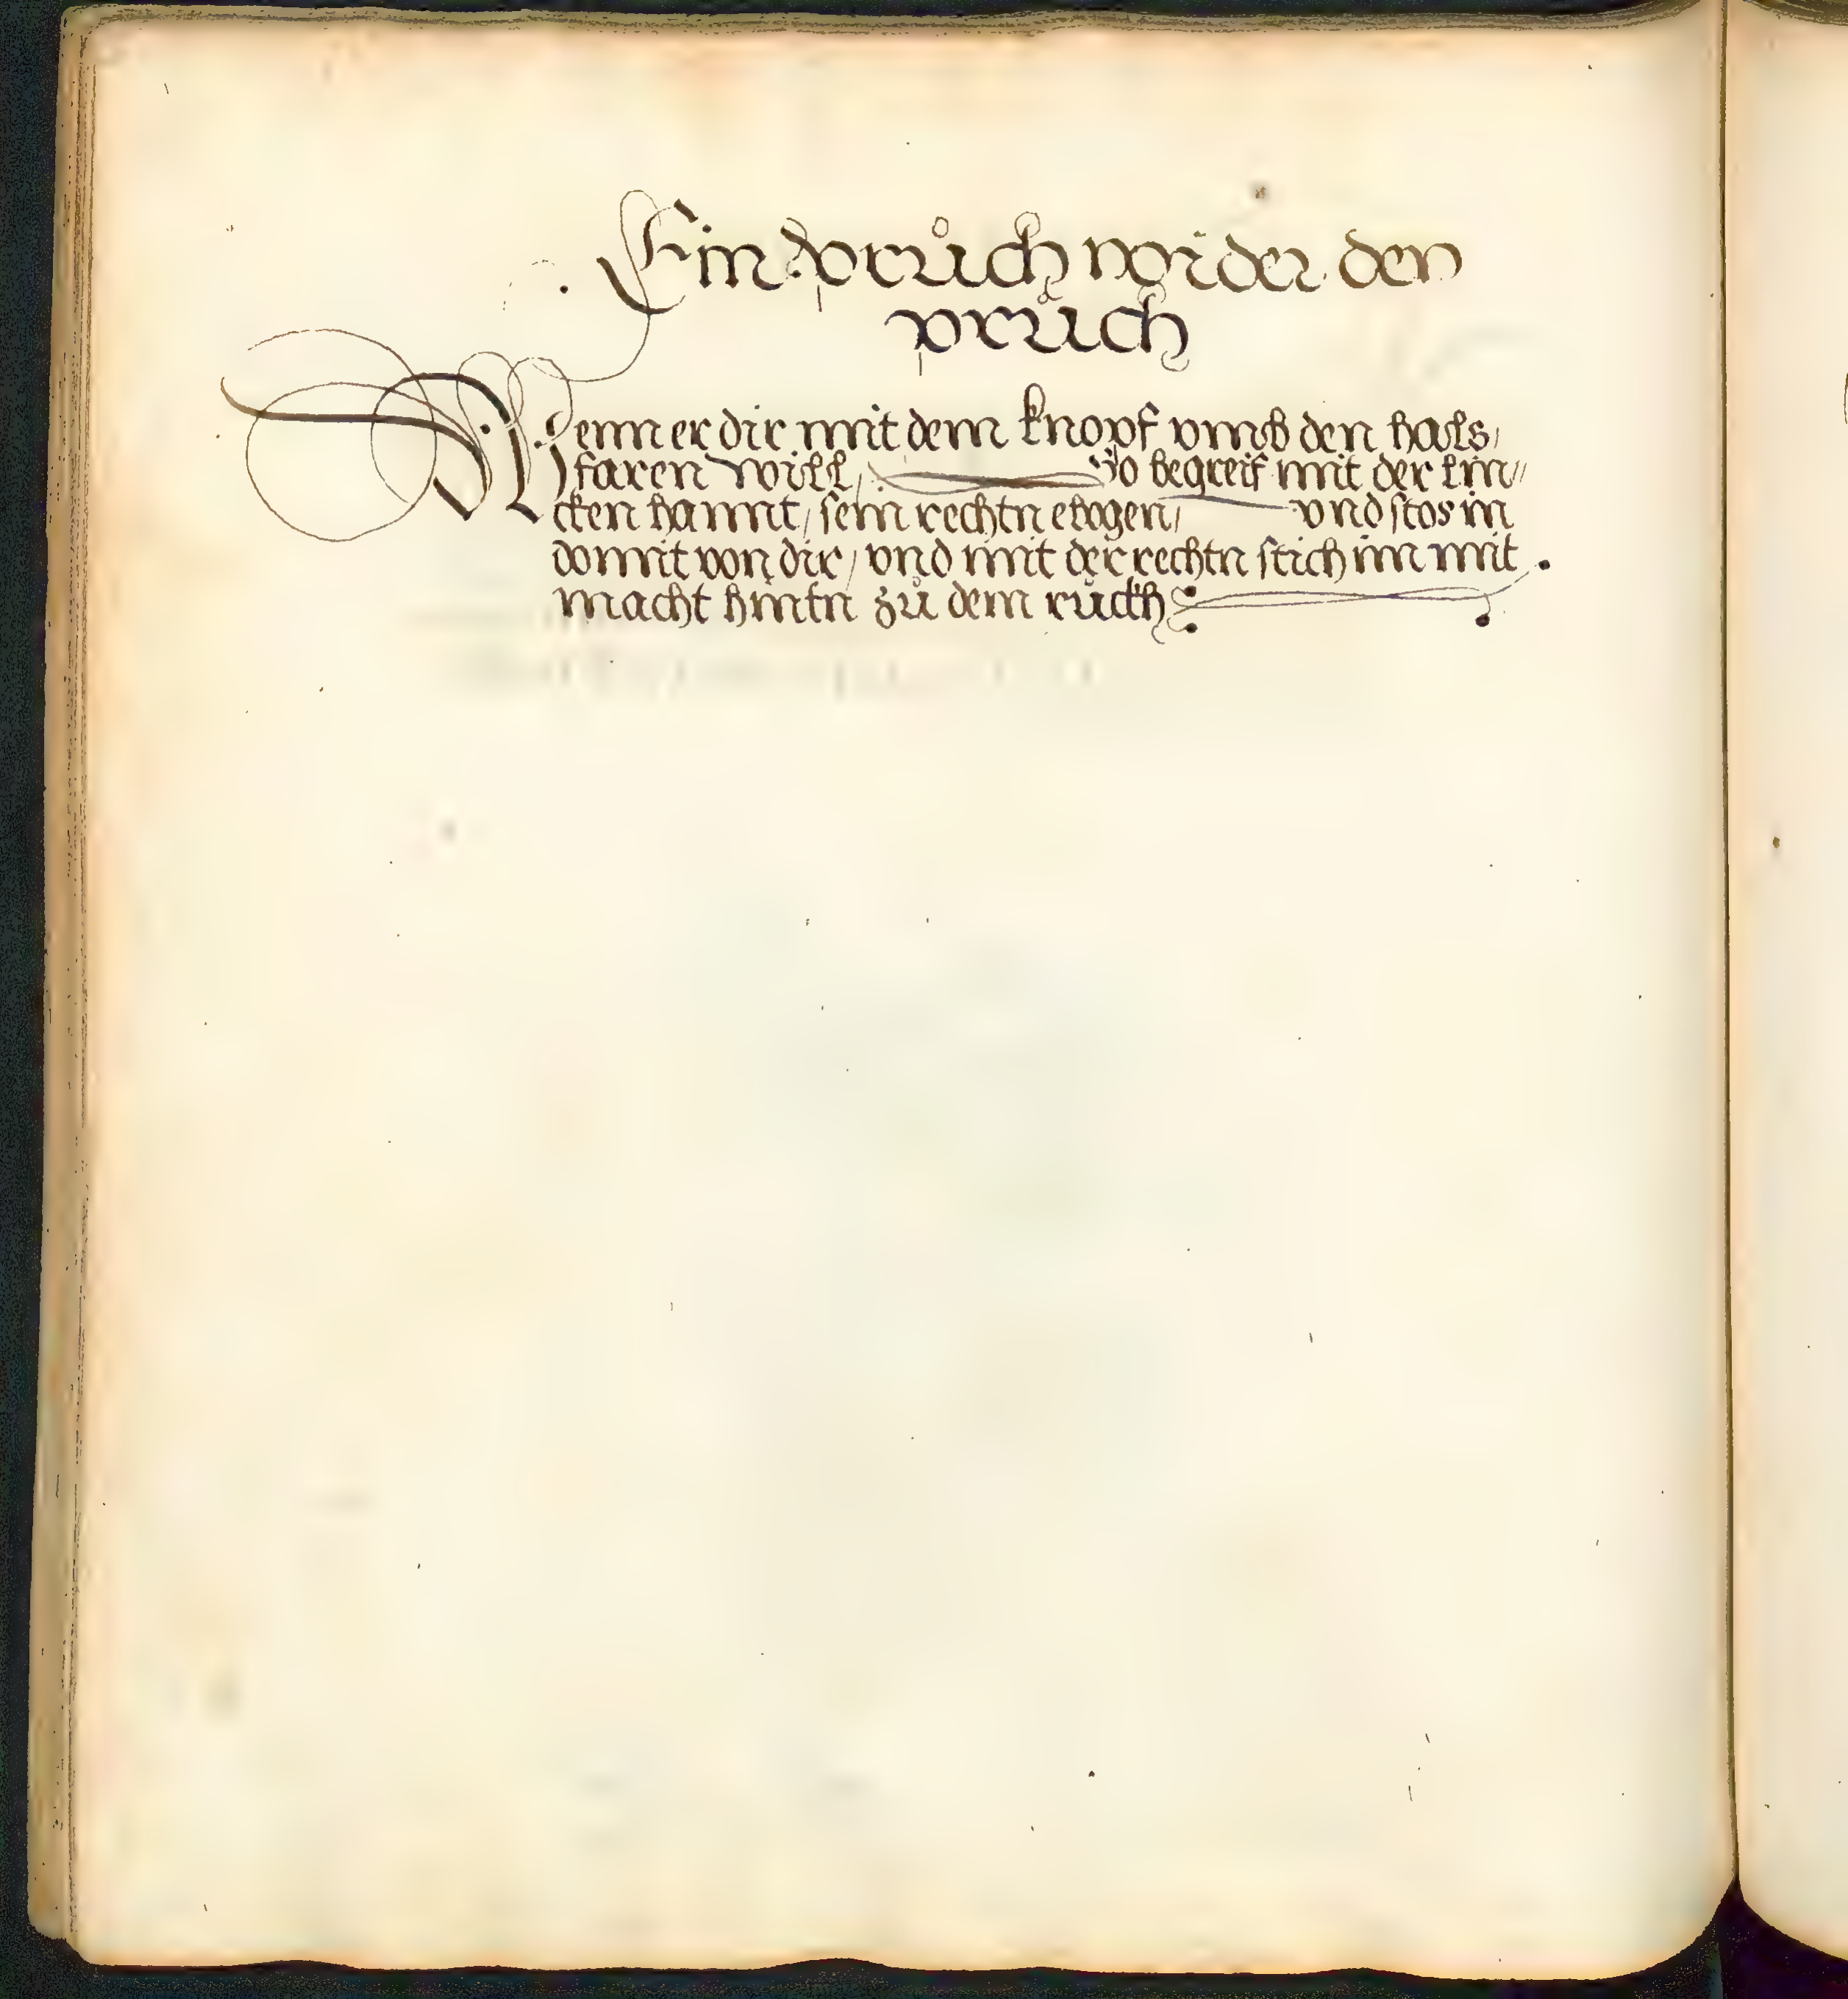 Ein pruͦch wider den
pruͦch
Wenn er dir mit dem knopf vmb den hals /
faren will / So begreif mit der lin //
cken hannt / sein rechtn elbogen / vnd stos in
domit von dir / vnd mit der rechtn stich im mit
macht hintn zuͦ dem ruͦckh